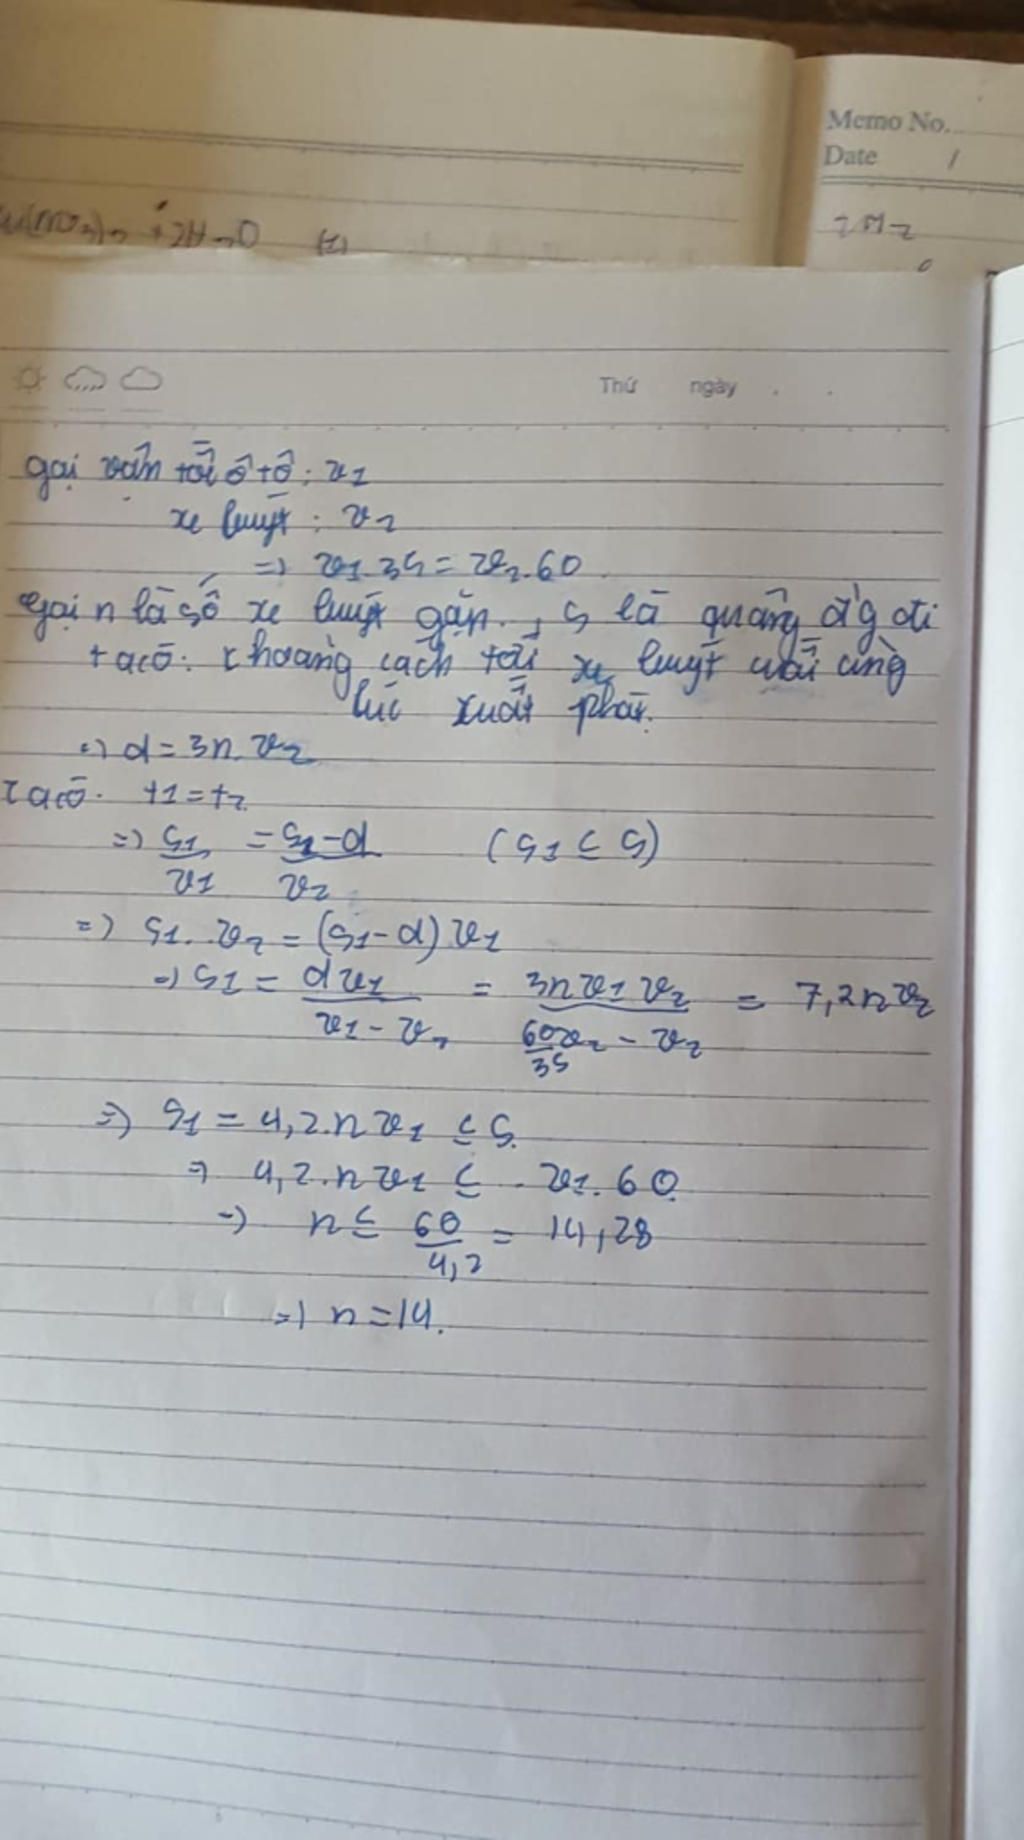 Memo No.
Date /
+2H2O (1)
Thứ ngày . .
gọi vận tốc ô tô: v1
xe buýt: v2
=> v1.35 = v2.60
Gọi n là số xe buýt gặp., S là quãng đg đi
+ ta có: khoảng cách tới xe buýt cuối cùng
lúc xuất phát.
=> d = 3n.v2
Ta có. t1 = t2
=> S1/v1 = (S1-d)/v2 (S1 ≤ S)
=> S1.v2 = (S1-d) v1
=> S1 = dv1/(v1-v2) = 3nv1v2/(60/35v2-v2) = 7,2nv2
=> S1 = 4,2.nv1 ≤ S.
=> 4,2.nv1 ≤ . v1.60
=> n ≤ 60/4,2 = 14,28
=> n = 14.